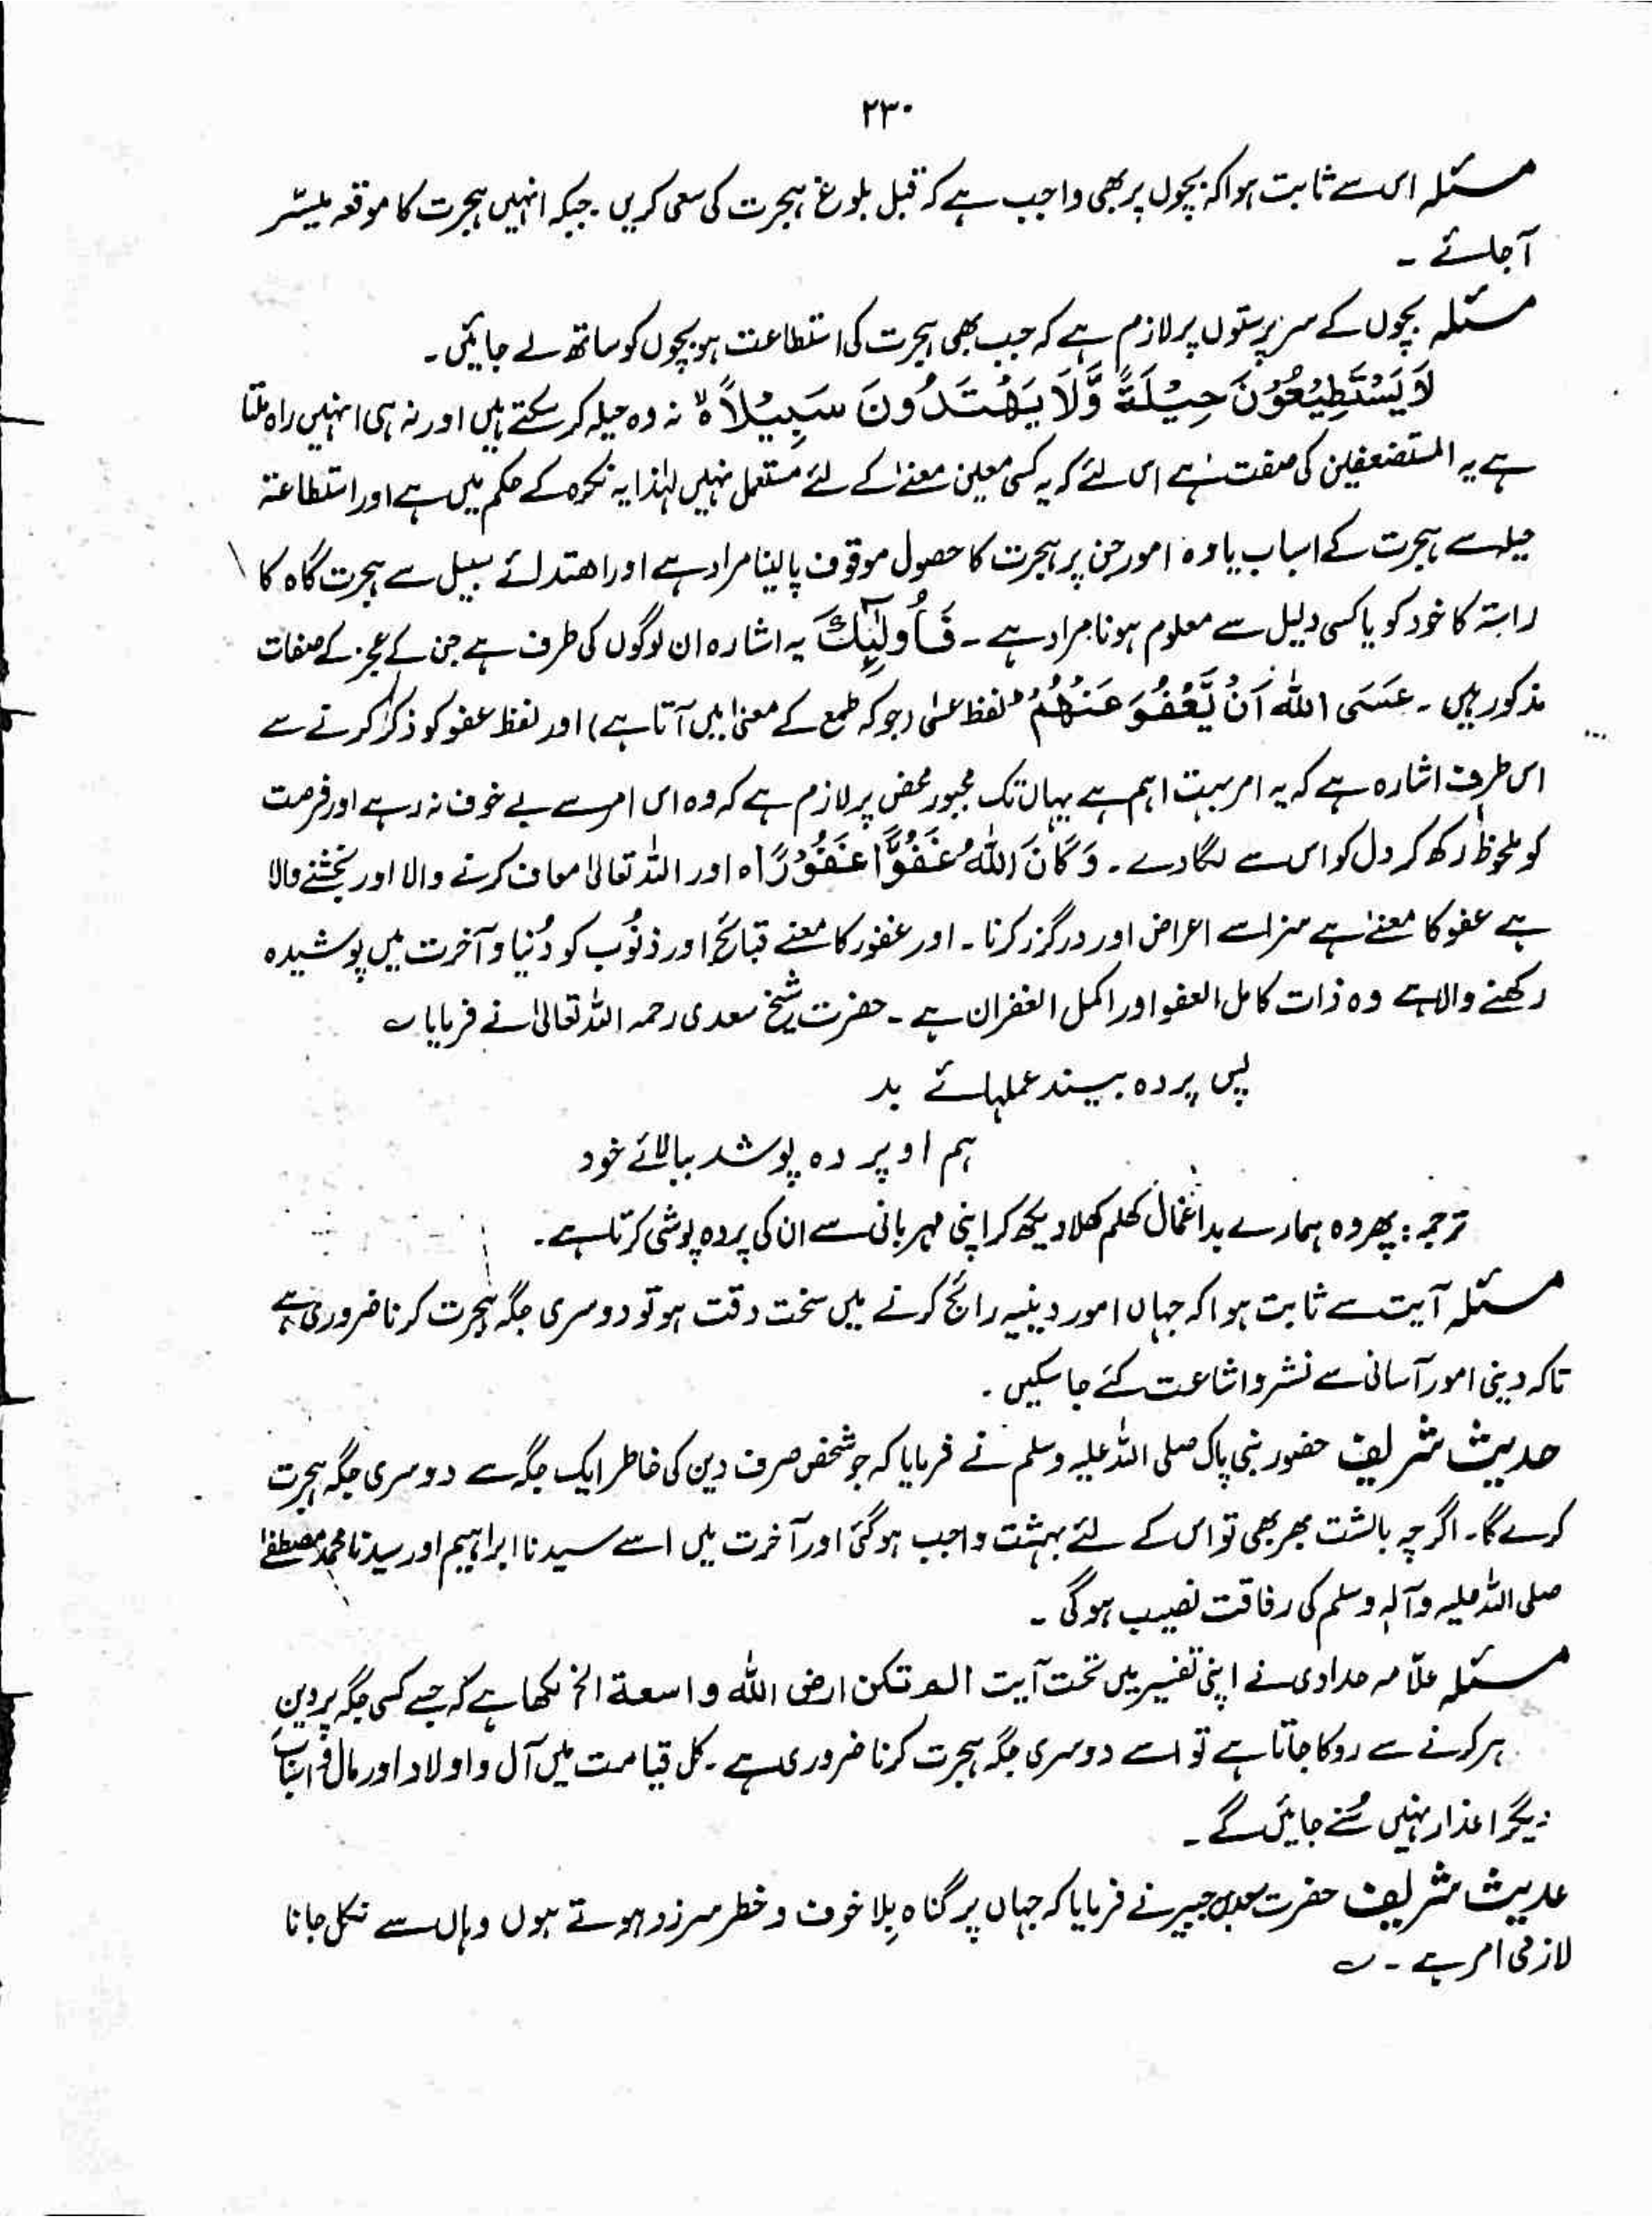 ۲۳۰
مسئلہ اس سے ثابت ہوا کہ بچوں پر بھی واجب ہے کہ قبل بلوغ ہجرت کی سعی کریں۔ جبکہ انہیں ہجرت کا موقعہ میسّر
آجائے ۔
مسئلہ بچوں کے سرپرستوں پر لازم ہے کہ جب بھی ہجرت کی استطاعت ہو بچوں کو ساتھ لے جائیں ۔
لَا يَسْتَطِيْعُوْنَ حِيْلَةً وَّلَا يَهْتَدُوْنَ سَبِيْلًاہ نہ وہ حیلہ کر سکتے ہیں اور نہ ہی انہیں راہ ملتا
ہے یہ المستضعفین کی صفت ہے اس لئے کہ یہ کسی معین معنےٰ کے لئے مستعمل نہیں لہٰذا یہ نکرہ کے حکم میں ہے اور استطاعتہ
حیلہ سے ہجرت کے اسباب یا وہ امور جن پر ہجرت کا حصول موقوف پا لینا مراد ہے اور اھتدائے سبیل سے ہجرت گاہ کا
راستہ کا خود کو یا کسی دلیل سے معلوم ہونا مراد ہے ۔ فَأُولٰٓئِكَ یہ اشارہ ان لوگوں کی طرف ہے جن کے عجز کے صفات
مذکور ہیں ۔ عَسَى اللّٰهُ اَنْ يَّعْفُوَ عَنْهُمْ لفظ عسٰی (جو کہ طمع کے معنیٰ میں آتا ہے) اور لفظ عفو کو ذکر کرنے سے
اس طرف اشارہ ہے کہ یہ امر بہت اہم ہے یہاں تک مجبور محض پر لازم ہے کہ وہ اس امر سے بے خوف نہ رہے اور فرصت
کو ملحوظ رکھ کر دل کو اس سے لگا دے ۔ وَ كَانَ اللّٰهُ عَفُوًّا غَفُوْرًاہ اور اللہ تعالیٰ معاف کرنے والا اور بخشنے والا
ہے عفو کا معنےٰ ہے سزا سے اعراض اور درگزر کرنا ۔ اور غفور کا معنے قبائح اور ذنُوب کو دُنیا و آخرت میں پوشیدہ
رکھنے والا ہے وہ ذات کامل العفو اور اکمل الغفران ہے ۔ حضرت شیخ سعدی رحمہ اللہ تعالیٰ نے فرمایا ؎
پس پردہ بیند عملہائے بد
ہم او پردہ پوشد ببالائے خود
ترجمہ : پھر وہ ہمارے بد اعمال کھلم کھلا دیکھ کر اپنی مہربانی سے ان کی پردہ پوشی کرتا ہے ۔
مسئلہ آیت سے ثابت ہوا کہ جہاں امور دینیہ رائج کرنے میں سخت دقت ہو تو دوسری جگہ ہجرت کرنا ضروری ہے
تاکہ دینی امور آسانی سے نشر و اشاعت کئے جا سکیں ۔
حدیث شریف حضور نبی پاک صلی اللہ علیہ وسلم نے فرمایا کہ جو شخص صرف دین کی خاطر ایک جگہ سے دوسری جگہ ہجرت
کرے گا ۔ اگرچہ بالشت بھر بھی تو اس کے لئے بہشت واجب ہوگئی اور آخرت میں اسے سیدنا ابراہیم اور سیدنا محمد مصطفےٰ
صلی اللہ علیہ وآلہٖ وسلم کی رفاقت نصیب ہوگی ۔
مسئلہ علّامہ حدادی نے اپنی تفسیر میں تحت آیت الم تکن ارض اللّٰہ واسعة الخ لکھا ہے کہ جسے کسی جگہ پر دین
کرنے سے روکا جاتا ہے تو اسے دوسری جگہ ہجرت کرنا ضروری ہے ۔ کل قیامت میں آل و اولاد اور مال و اسباب
دیگر اعذار نہیں سُنے جائیں گے ۔
حدیث شریف حضرت جبیر نے فرمایا کہ جہاں پر گناہ بِلا خوف و خطر سرزد ہوتے ہوں وہاں سے نکل جانا
لازمی امر ہے ۔ ؎